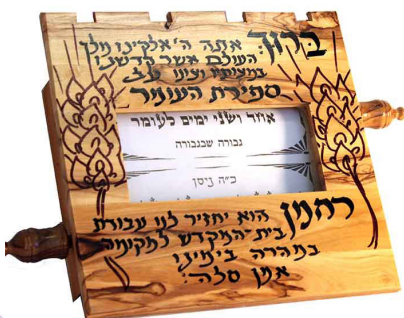 ברוך אתה ה' אלקינו מלך
העולם אשר קדשנו
במצותיו וצונו על
ספירת העומר
אחד ושני ימים לעומר
גבורה שבגבורה
כ"ה ניסן
רחמן הוא יחזיר לנו עבודת
בית-המקדש למקומה
במהרה בימינו
אמן סלה: